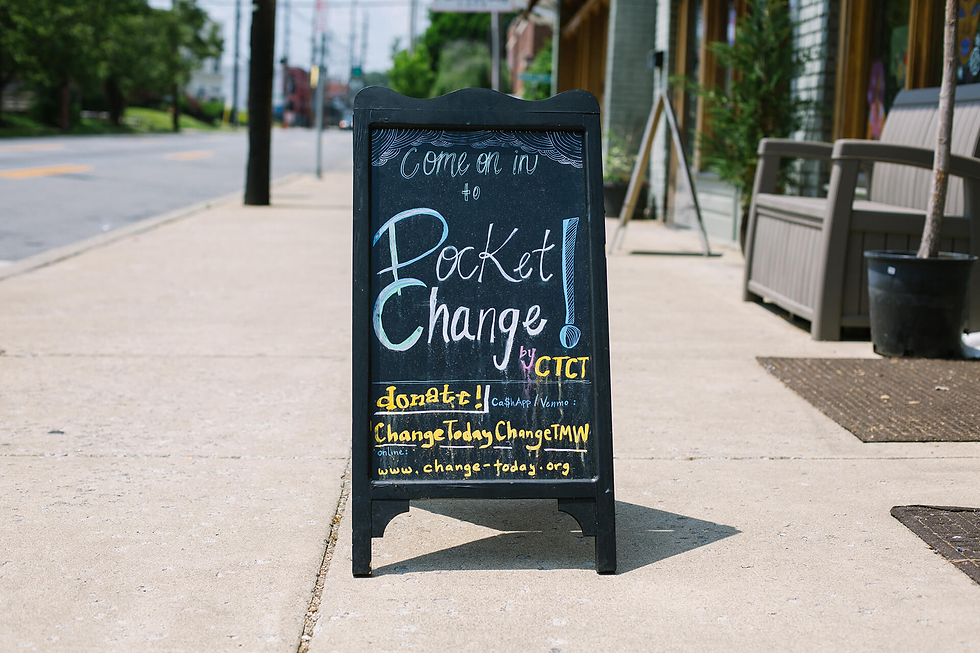 Come on in
to
Pocket
Change!
by CTCT
donate! Ca$hApp / Venmo :
ChangeToday ChangeTMW
online:
www.change-today.org